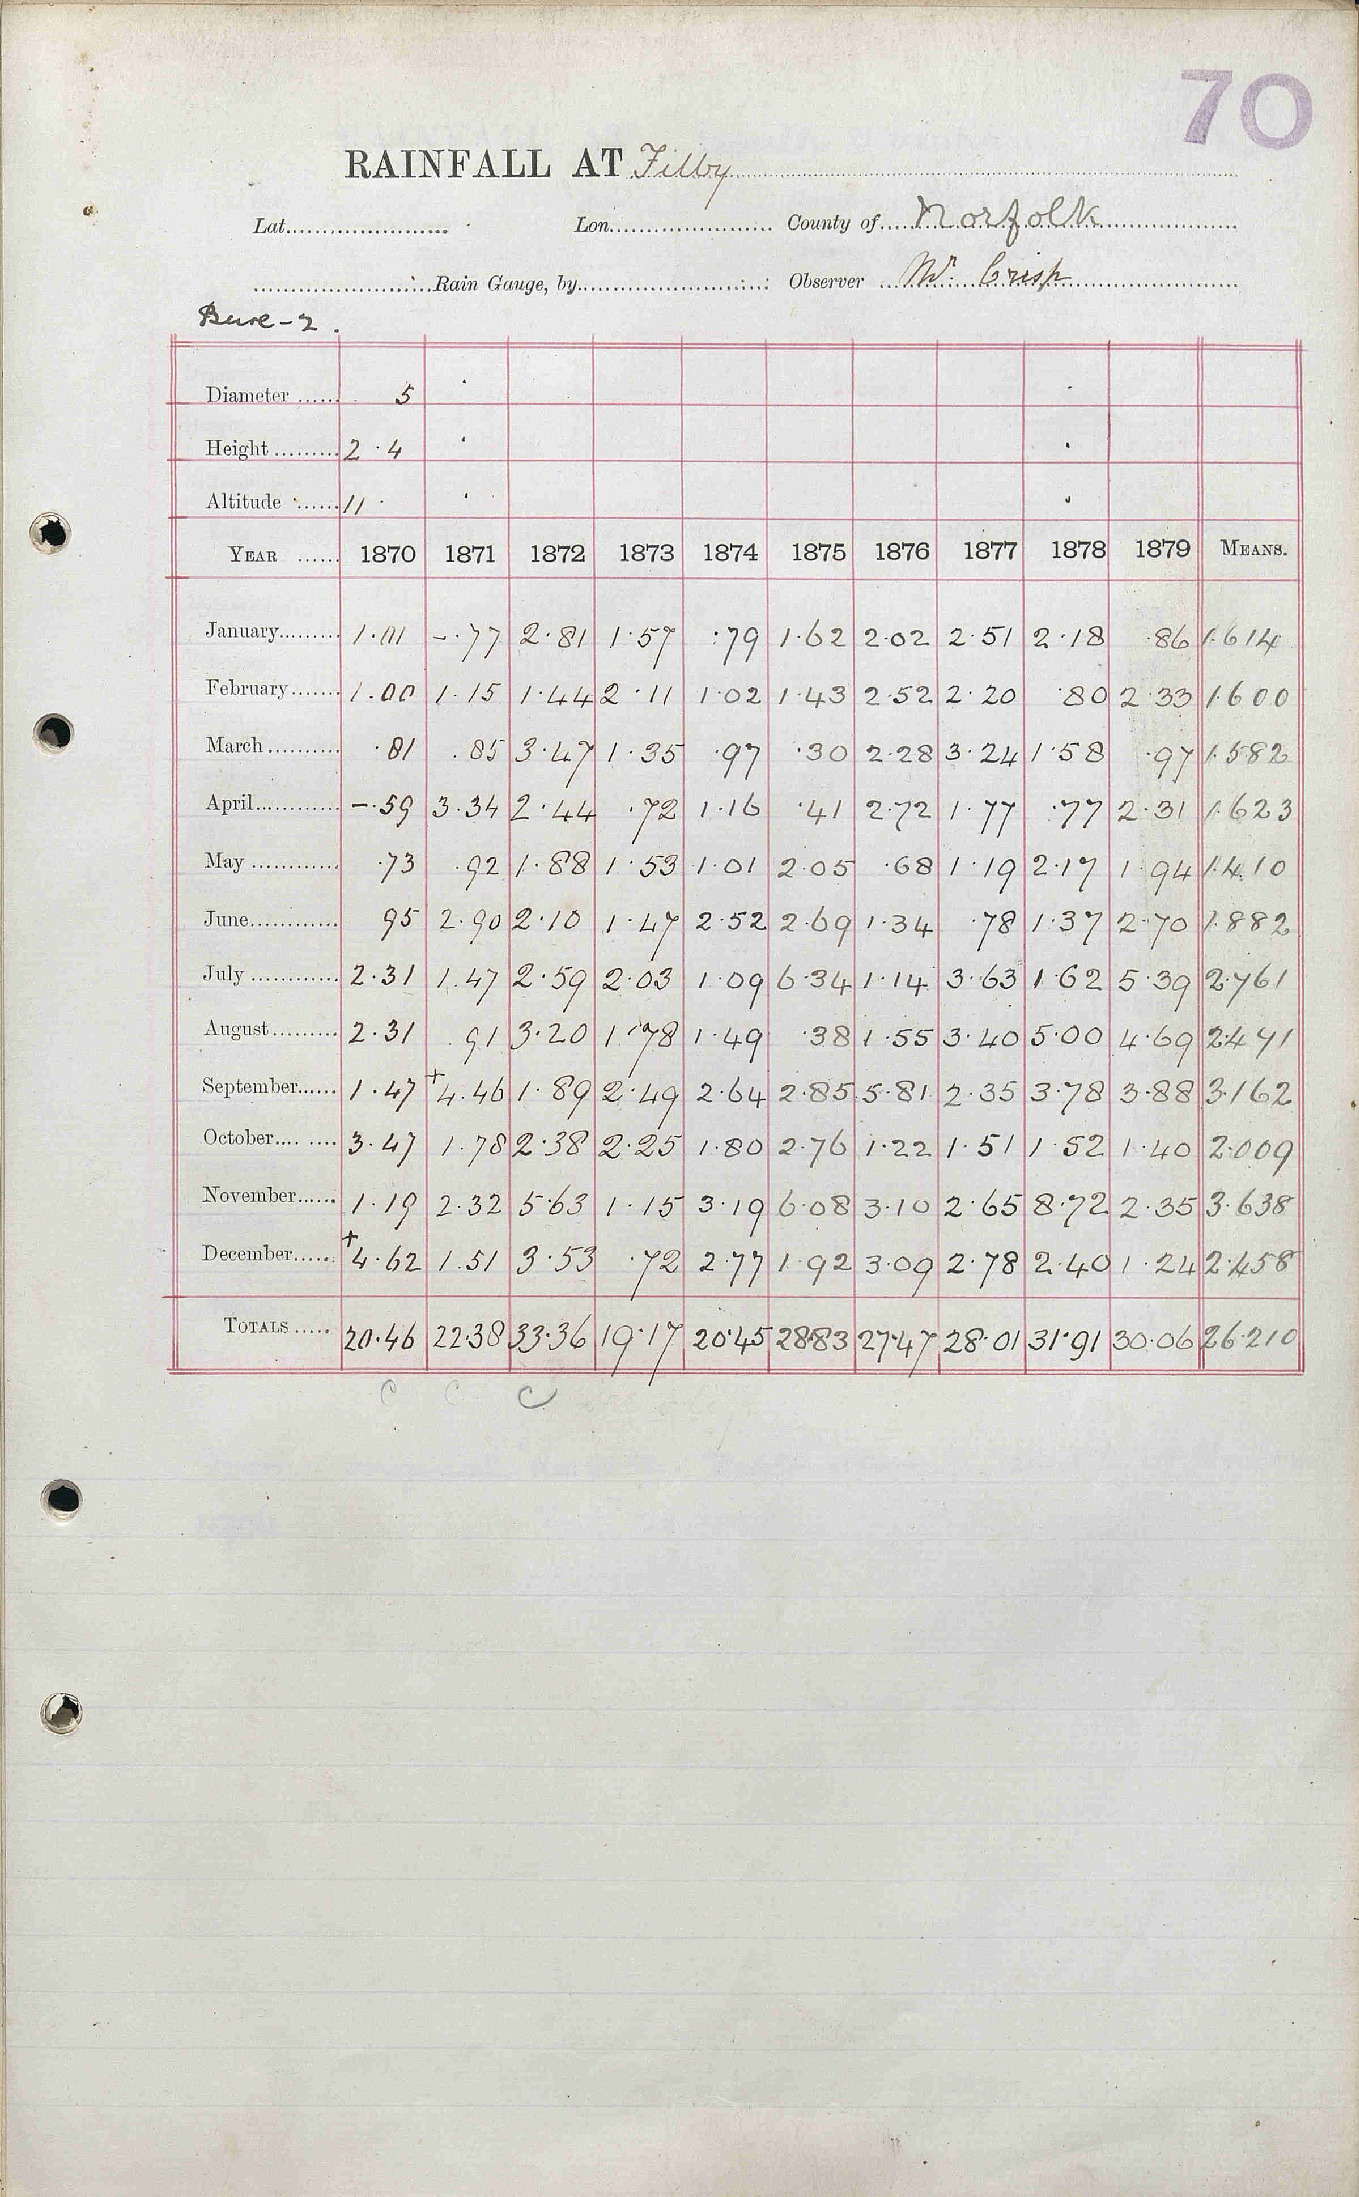 70
RAINFALL AT Filby
Lat. Lon. County of Norfolk
Rain Gauge, by Observer Mr. Crisp
Bure - 2.
Diameter ...... 5
Height ......... 2·4
Altitude ...... 11
YEAR ...... 1870 1871 1872 1873 1874 1875 1876 1877 1878 1879 MEANS.
January......... 1·01 -·77 2·81 1·57 ·79 1·62 2·02 2·51 2·18 ·86 1·614
February....... 1·00 1·15 1·44 2·11 1·02 1·43 2·52 2·20 ·80 2·33 1·600
March.......... ·81 ·85 3·47 1·35 ·97 ·30 2·28 3·24 1·58 ·97 1·582
April............ -·59 3·34 2·44 ·72 1·16 ·41 2·72 1·77 ·77 2·31 1·623
May ............ ·73 ·92 1·88 1·53 1·01 2·05 ·68 1·19 2·17 1·94 1·410
June............ 95 2·90 2·10 1·47 2·52 2·69 1·34 ·78 1·37 2·70 1·882
July ............ 2·31 1·47 2·59 2·03 1·09 6·34 1·14 3·63 1·62 5·39 2·761
August......... 2·31 ·91 3·20 1·78 1·49 ·38 1·55 3·40 5·00 4·69 2·471
September...... 1·47 +4·46 1·89 2·49 2·64 2·85 5·81 2·35 3·78 3·88 3·162
October.... .... 3·47 1·78 2·38 2·25 1·80 2·76 1·22 1·51 1·52 1·40 2·009
November...... 1·19 2·32 5·63 1·15 3·19 6·08 3·10 2·65 8·72 2·35 3·638
December...... +4·62 1·51 3·53 ·72 2·77 1·92 3·09 2·78 2·40 1·24 2·458
TOTALS ..... 20·46 22·38 33·36 19·17 20·45 28·83 27·47 28·01 31·91 30·06 26·210
C C C